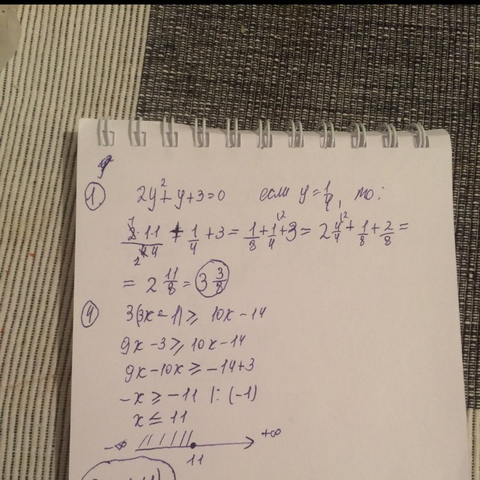 ① 2y²+y+3=0 если y=1/4, то:
2·1·1/4·4 + 1/4 + 3 = 1/8 + 1/4 + 3 = 2 4/4 + 1/8 + 2/8 =
= 2 11/8 = 3 3/8
④ 3(3x-1) ≥ 10x-14
9x-3 ≥ 10x-14
9x-10x ≥ -14+3
-x ≥ -11 |:(-1)
x ≤ 11
-∞ +∞
11